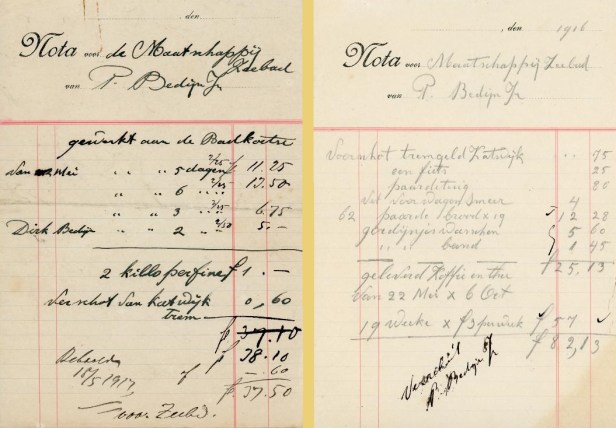 , den
Nota voor de Maatschappij
Zeebad
van P. Bedijn Jr
gewerkt aan de Badkoetse
Van Mei " " 5 dagen 2/25 f 11.25
" " 6 " 2/25 13.50
" " 3 " 6.75
Dirk Bedijn " " 2 " 2/50 5.—
2 killo perfine f 1.—
Verschot van katwijk 0,60
trem
f 37.10
f 38.10
—.60
f 37.50
18/5 1917
voor Zeeb.
, den 1916
Nota voor Maatschappij Zeebad
van P. Bedijn Jr
Verschot tremgeld Katwijk " 75
een fiets 25
paardetuig 80
Vet voor wagen smeer 4
62 paarde brood x 19 12 28
gordijntjes wasschen 5 60
" " band 1 45
f 25,13
geleverd Koffie en thee
Van 22 Mei x 6 Oct
19 weeke x f 3 per week f 57
f 82,13
P. Bedijn Jr